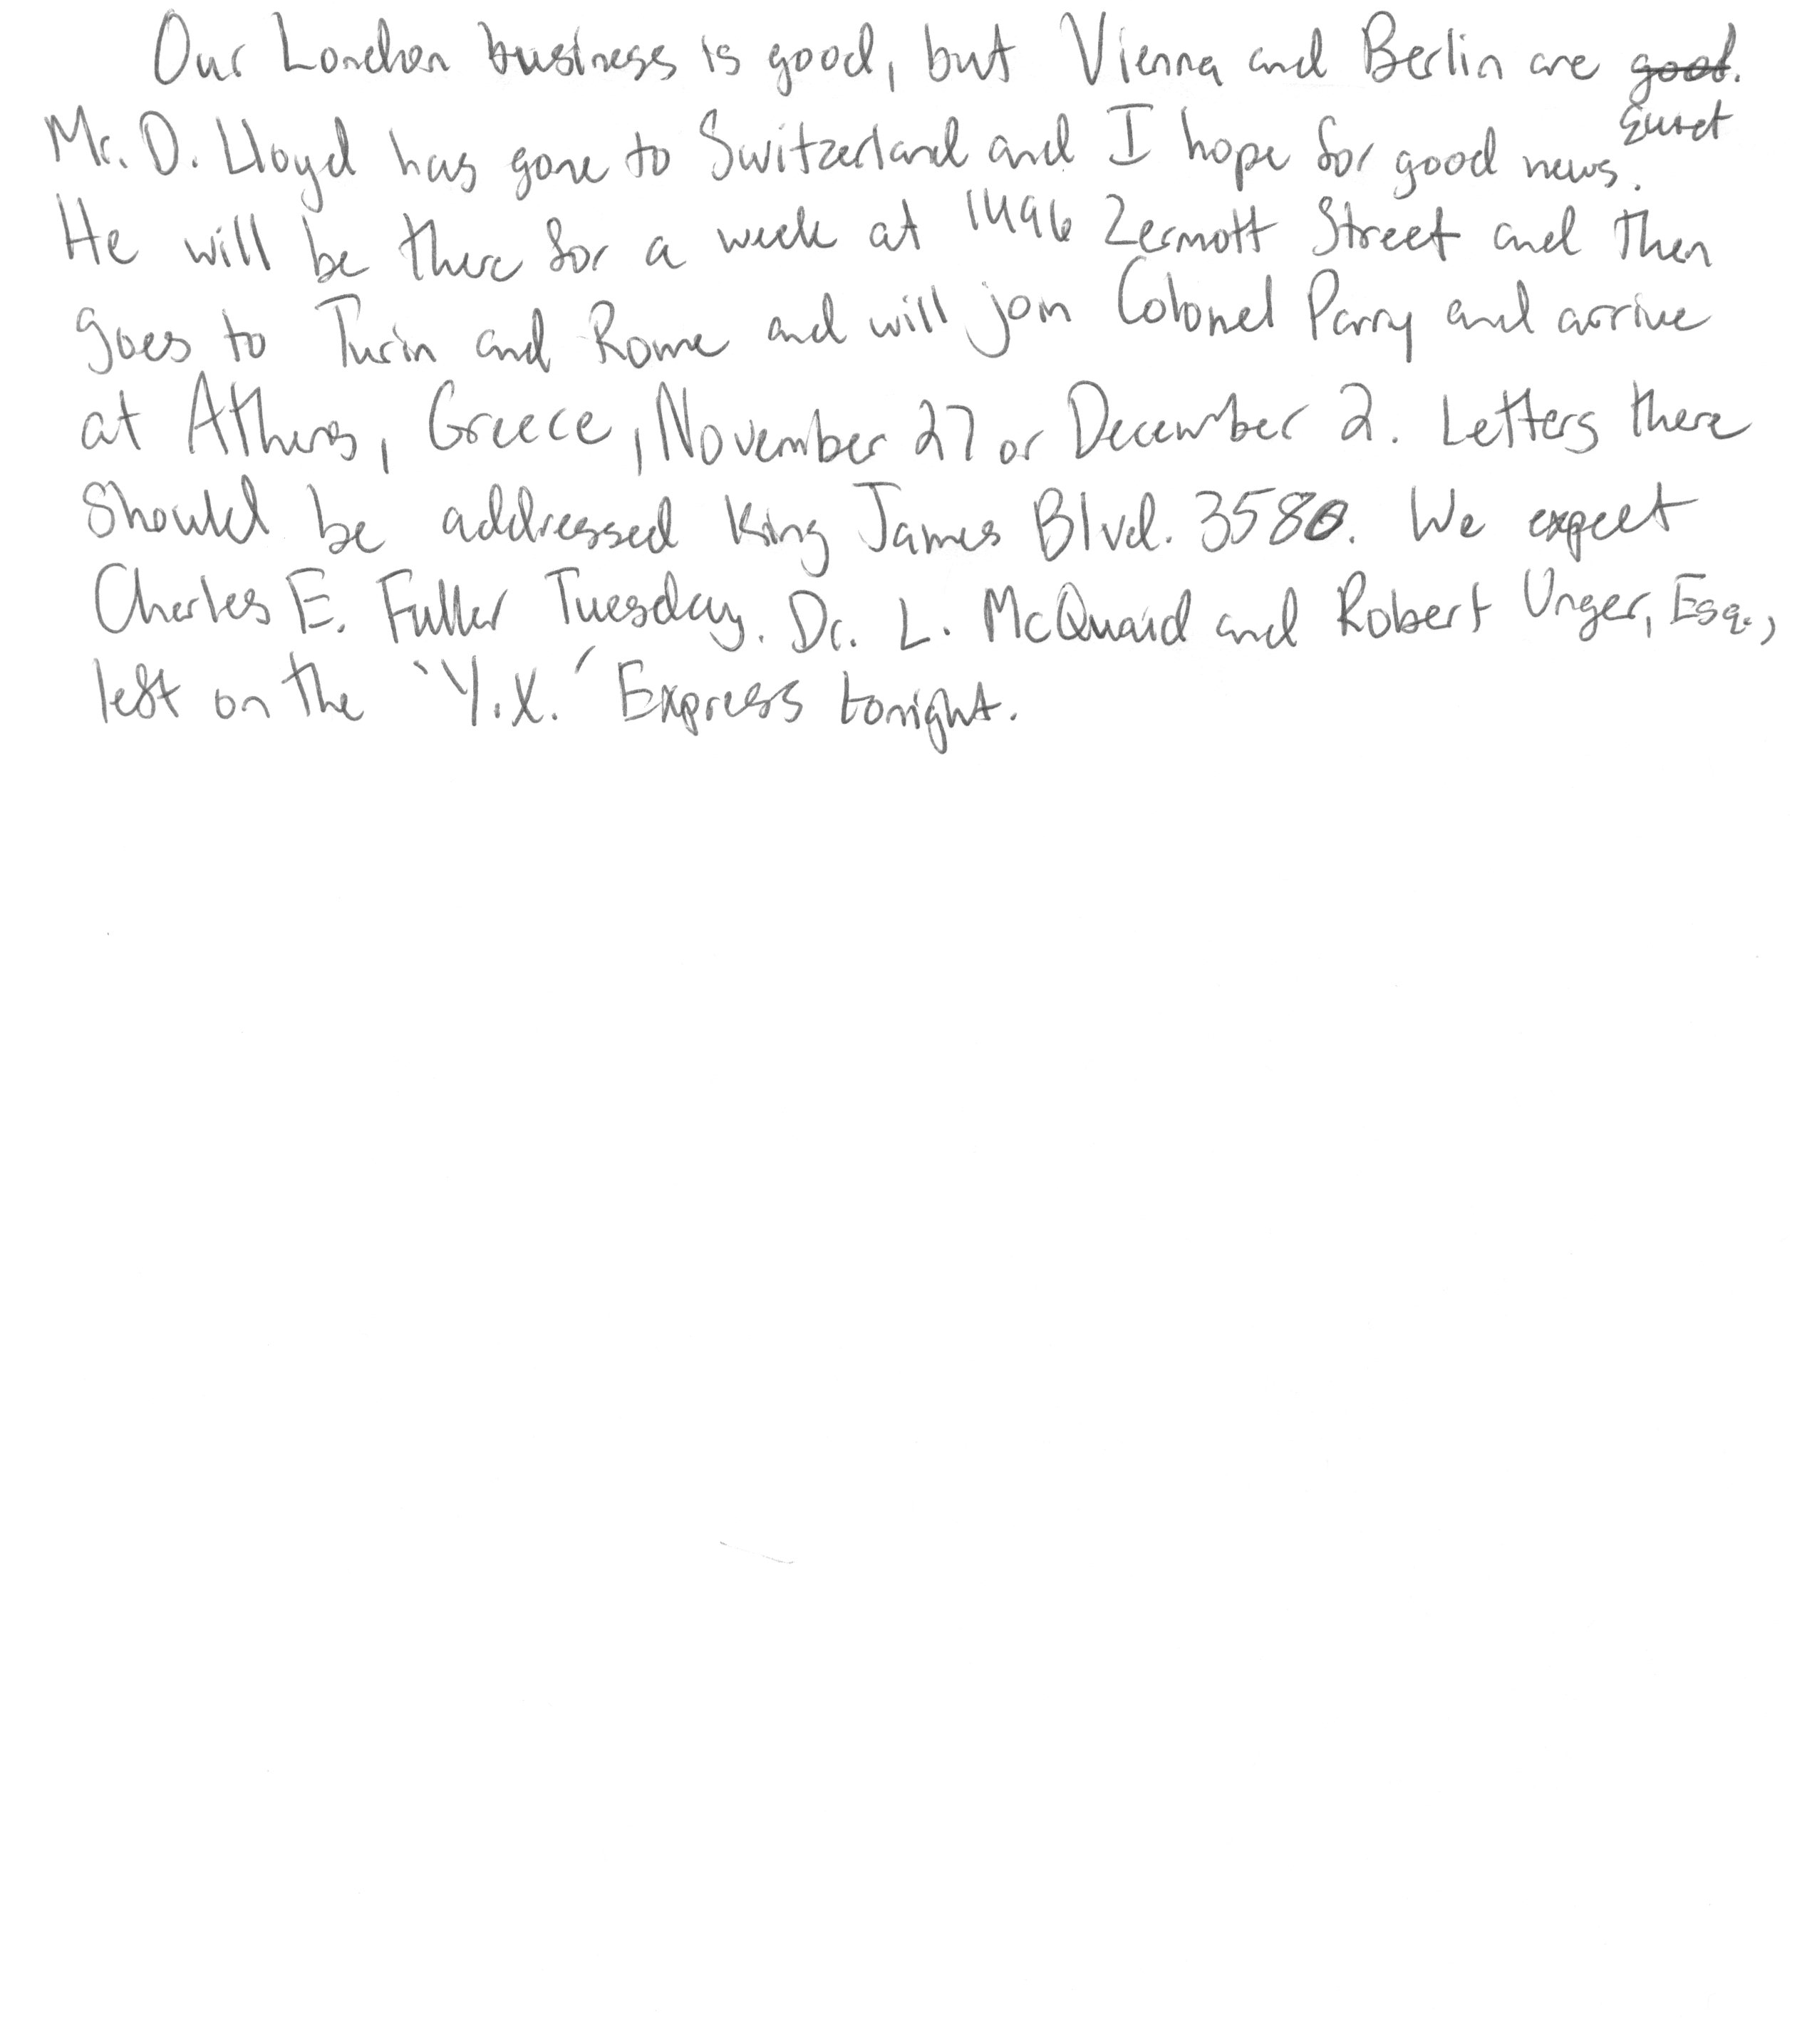 Our London business is good, but Vienna and Berlin are good.
quiet
Mr. D. Lloyd has gone to Switzerland and I hope for good news.
He will be there for a week at 1496 Zermott Street and then
goes to Turin and Rome and will join Colonel Parry and arrive
at Athens, Greece, November 27 or December 2. Letters there
should be addressed King James Blvd. 3580. We expect
Charles E. Fuller Tuesday. Dr. L. McQuaid and Robert Unger, Esq.,
left on the 'Y.X.' Express tonight.